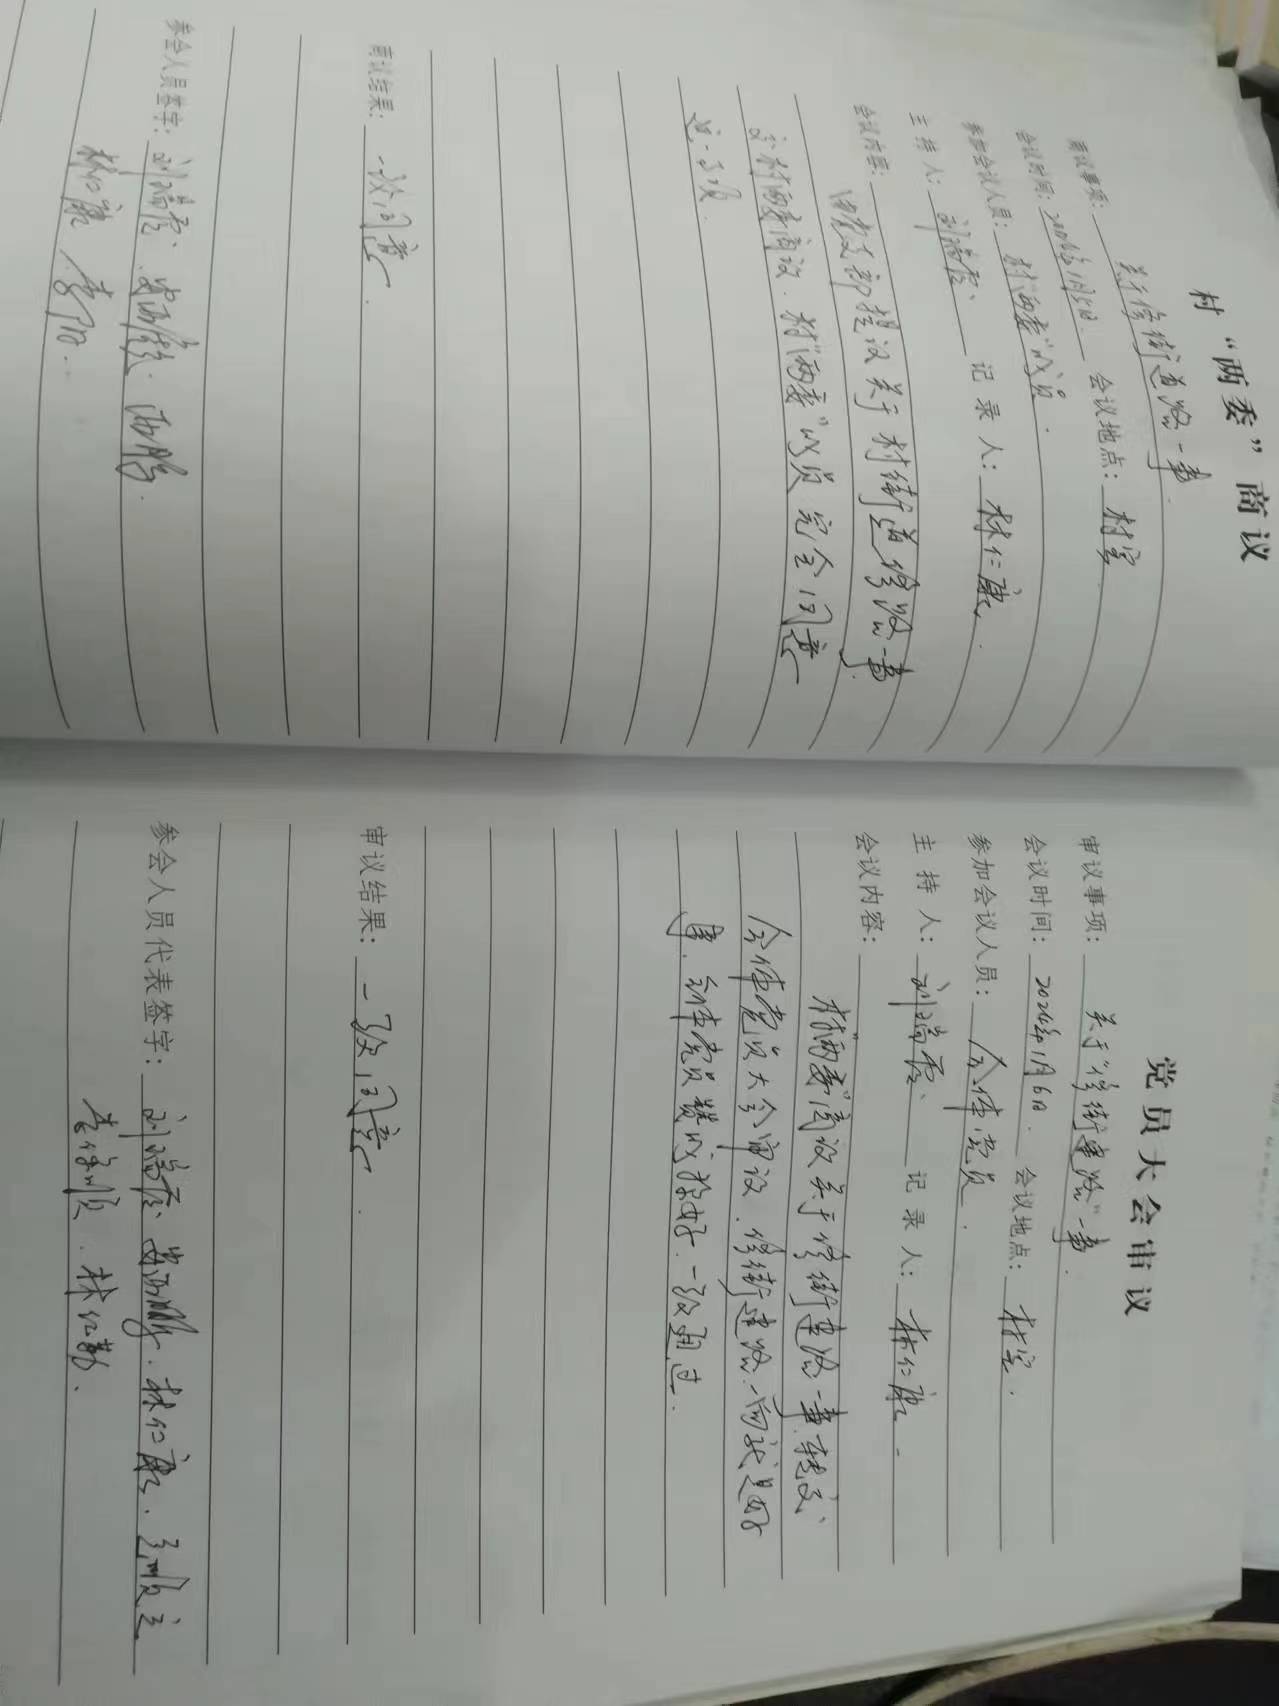 村“两委”商议
商议事项：关于修街道路一事.
会议时间：2024年1月5日. 会议地点：村室
参加会议人员：村“两委”成员.
主 持 人：刘瑞霞、 记 录 人：林仁康.
会议内容：
由党支部提议关于村街道修路一事
交村两委商议.村“两委”成员完全同意
这一决议.
商议结果：一致同意.
参会人员签字：刘瑞霞.
林仁康.
党员大会审议
审议事项：关于“修街建路”一事.
会议时间：2024年1月6日. 会议地点：村室.
参加会议人员：全体党员.
主 持 人：刘瑞霞、 记 录 人：林仁康.
会议内容：
村“两委”商议关于修街建路一事,转交
全体党员大会审议.修街建路.一向就是好
事.全体党员赞成拥好.一致通过.
审议结果：一致同意.
参会人员代表签字：刘瑞霞.林仁康.
林仁勤.